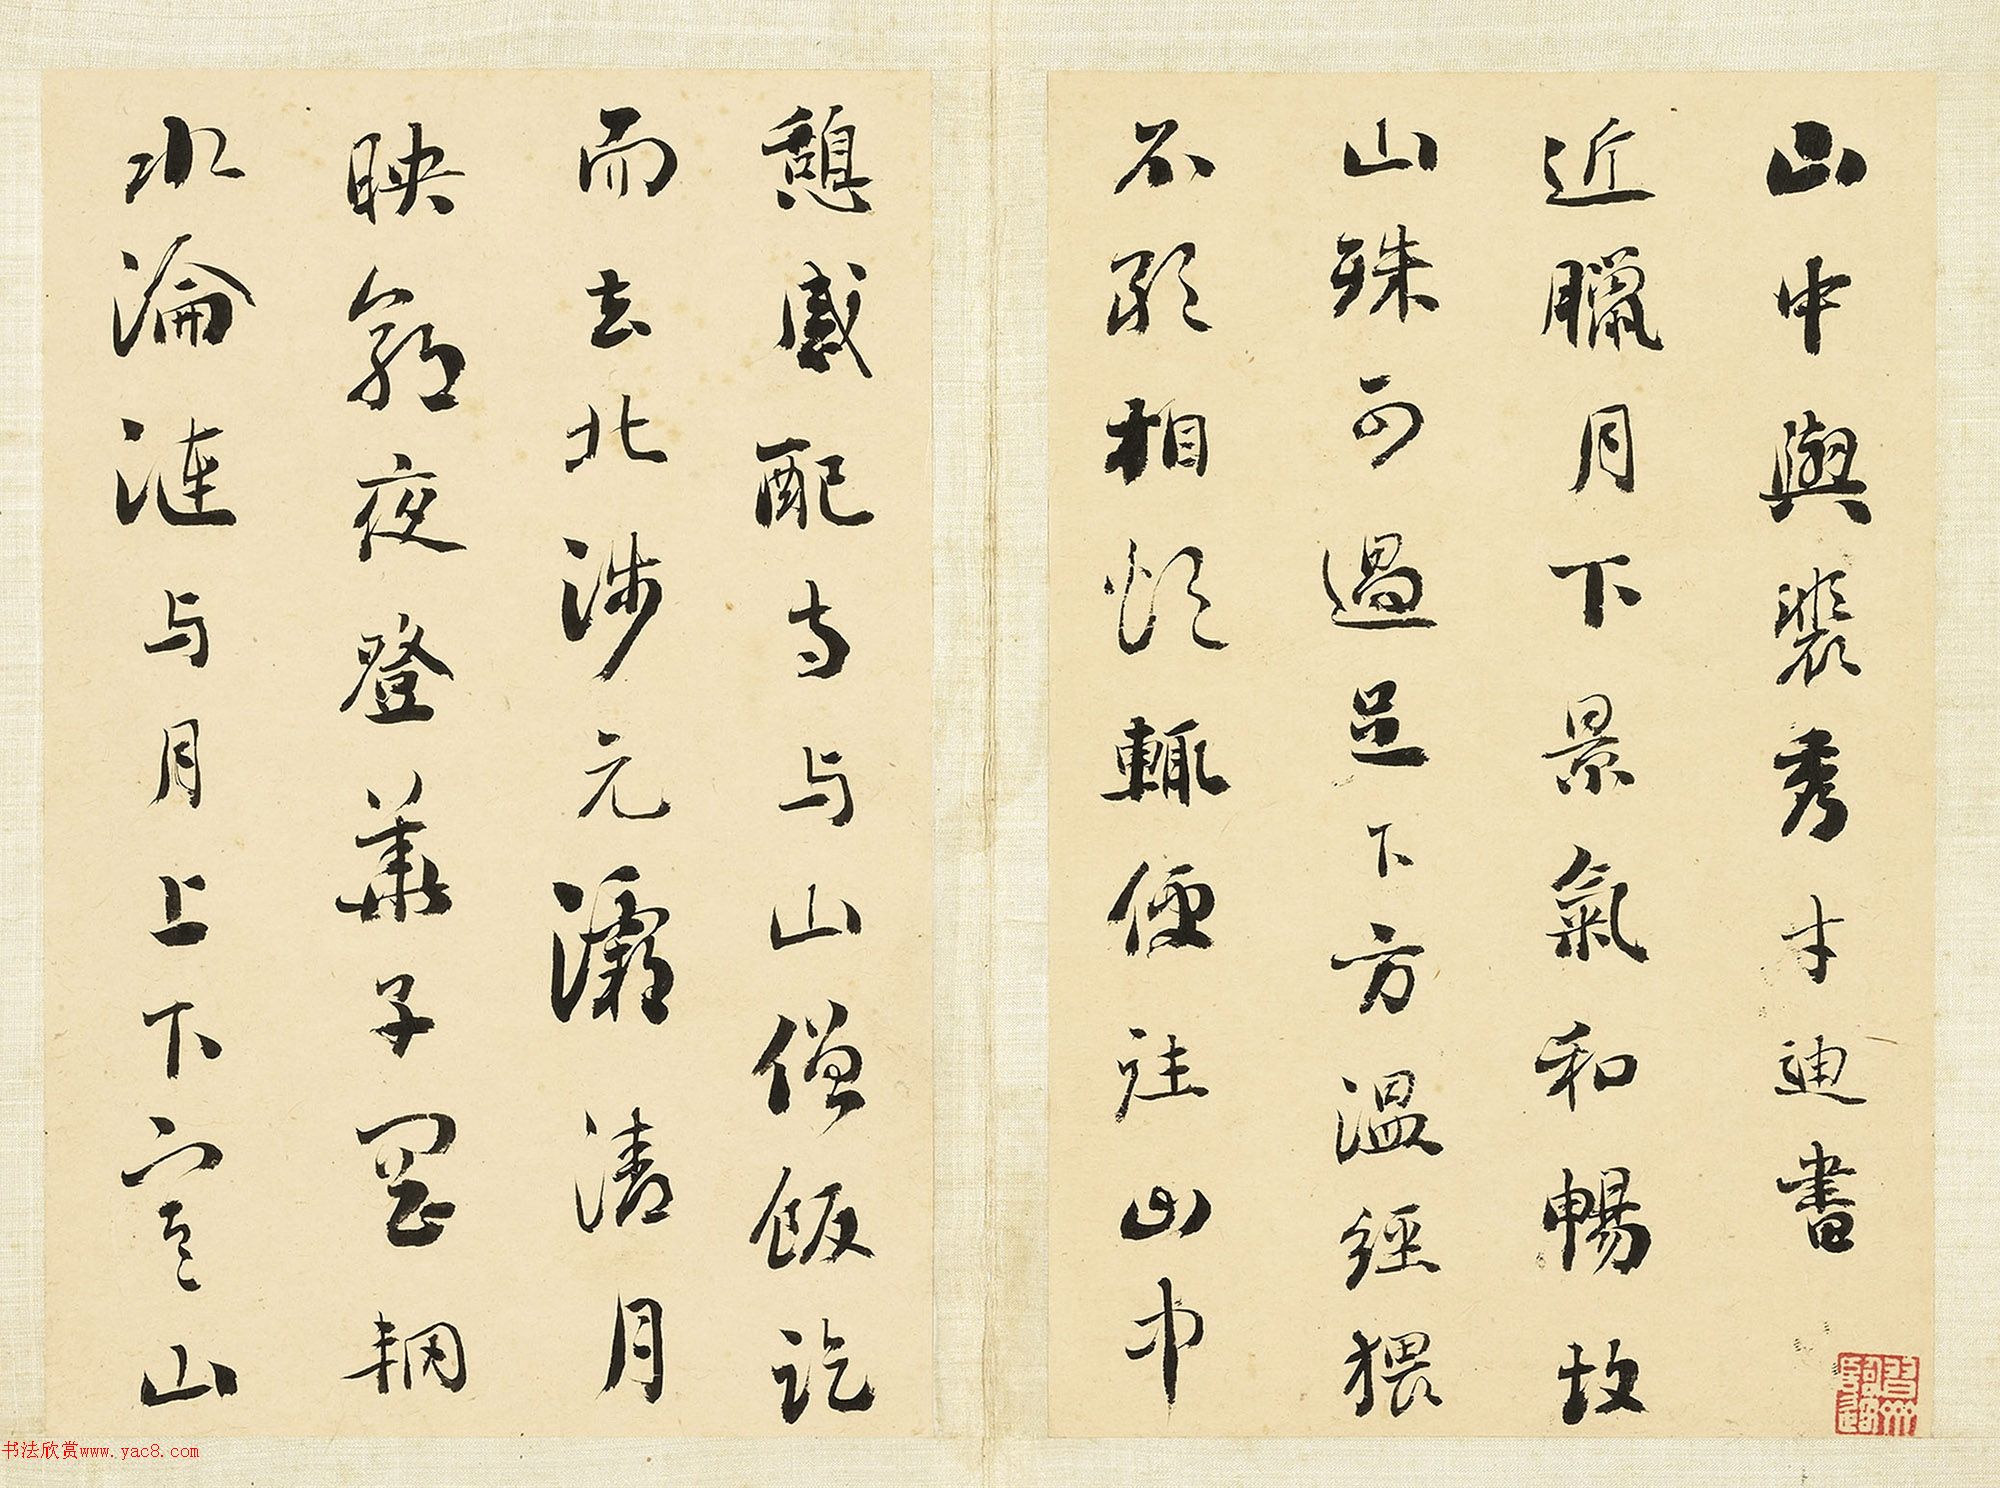 山中與裴秀才迪書
近臘月下景氣和暢故
山殊可過足下方溫經猥
不敢相煩輒便往山中
憩感配寺与山僧飯訖
而去北涉元灞清月
映郭夜登華子岡輞
水淪漣与月上下寒山
书法欣赏www.yac8.com